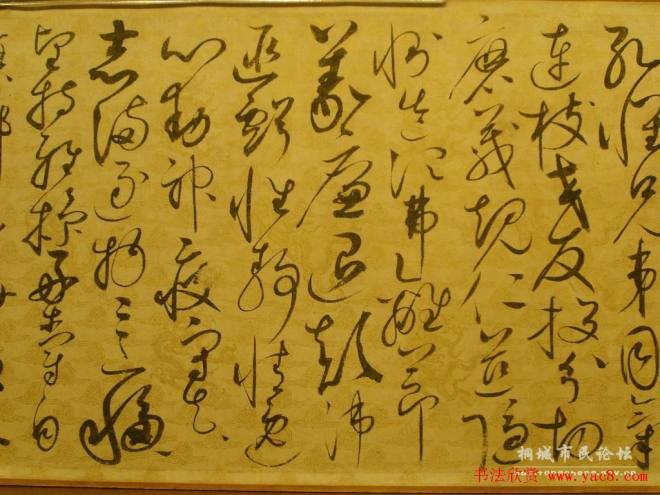 孔懷兄弟同氣
連枝交友投分切
磨箴規仁慈隱
惻造次弗離節
義廉退顛沛
匪虧性靜情逸
心動神疲守真
志滿逐物意移
堅持雅操好爵自
桐城市民论坛
书法欣赏 www.yac8.com